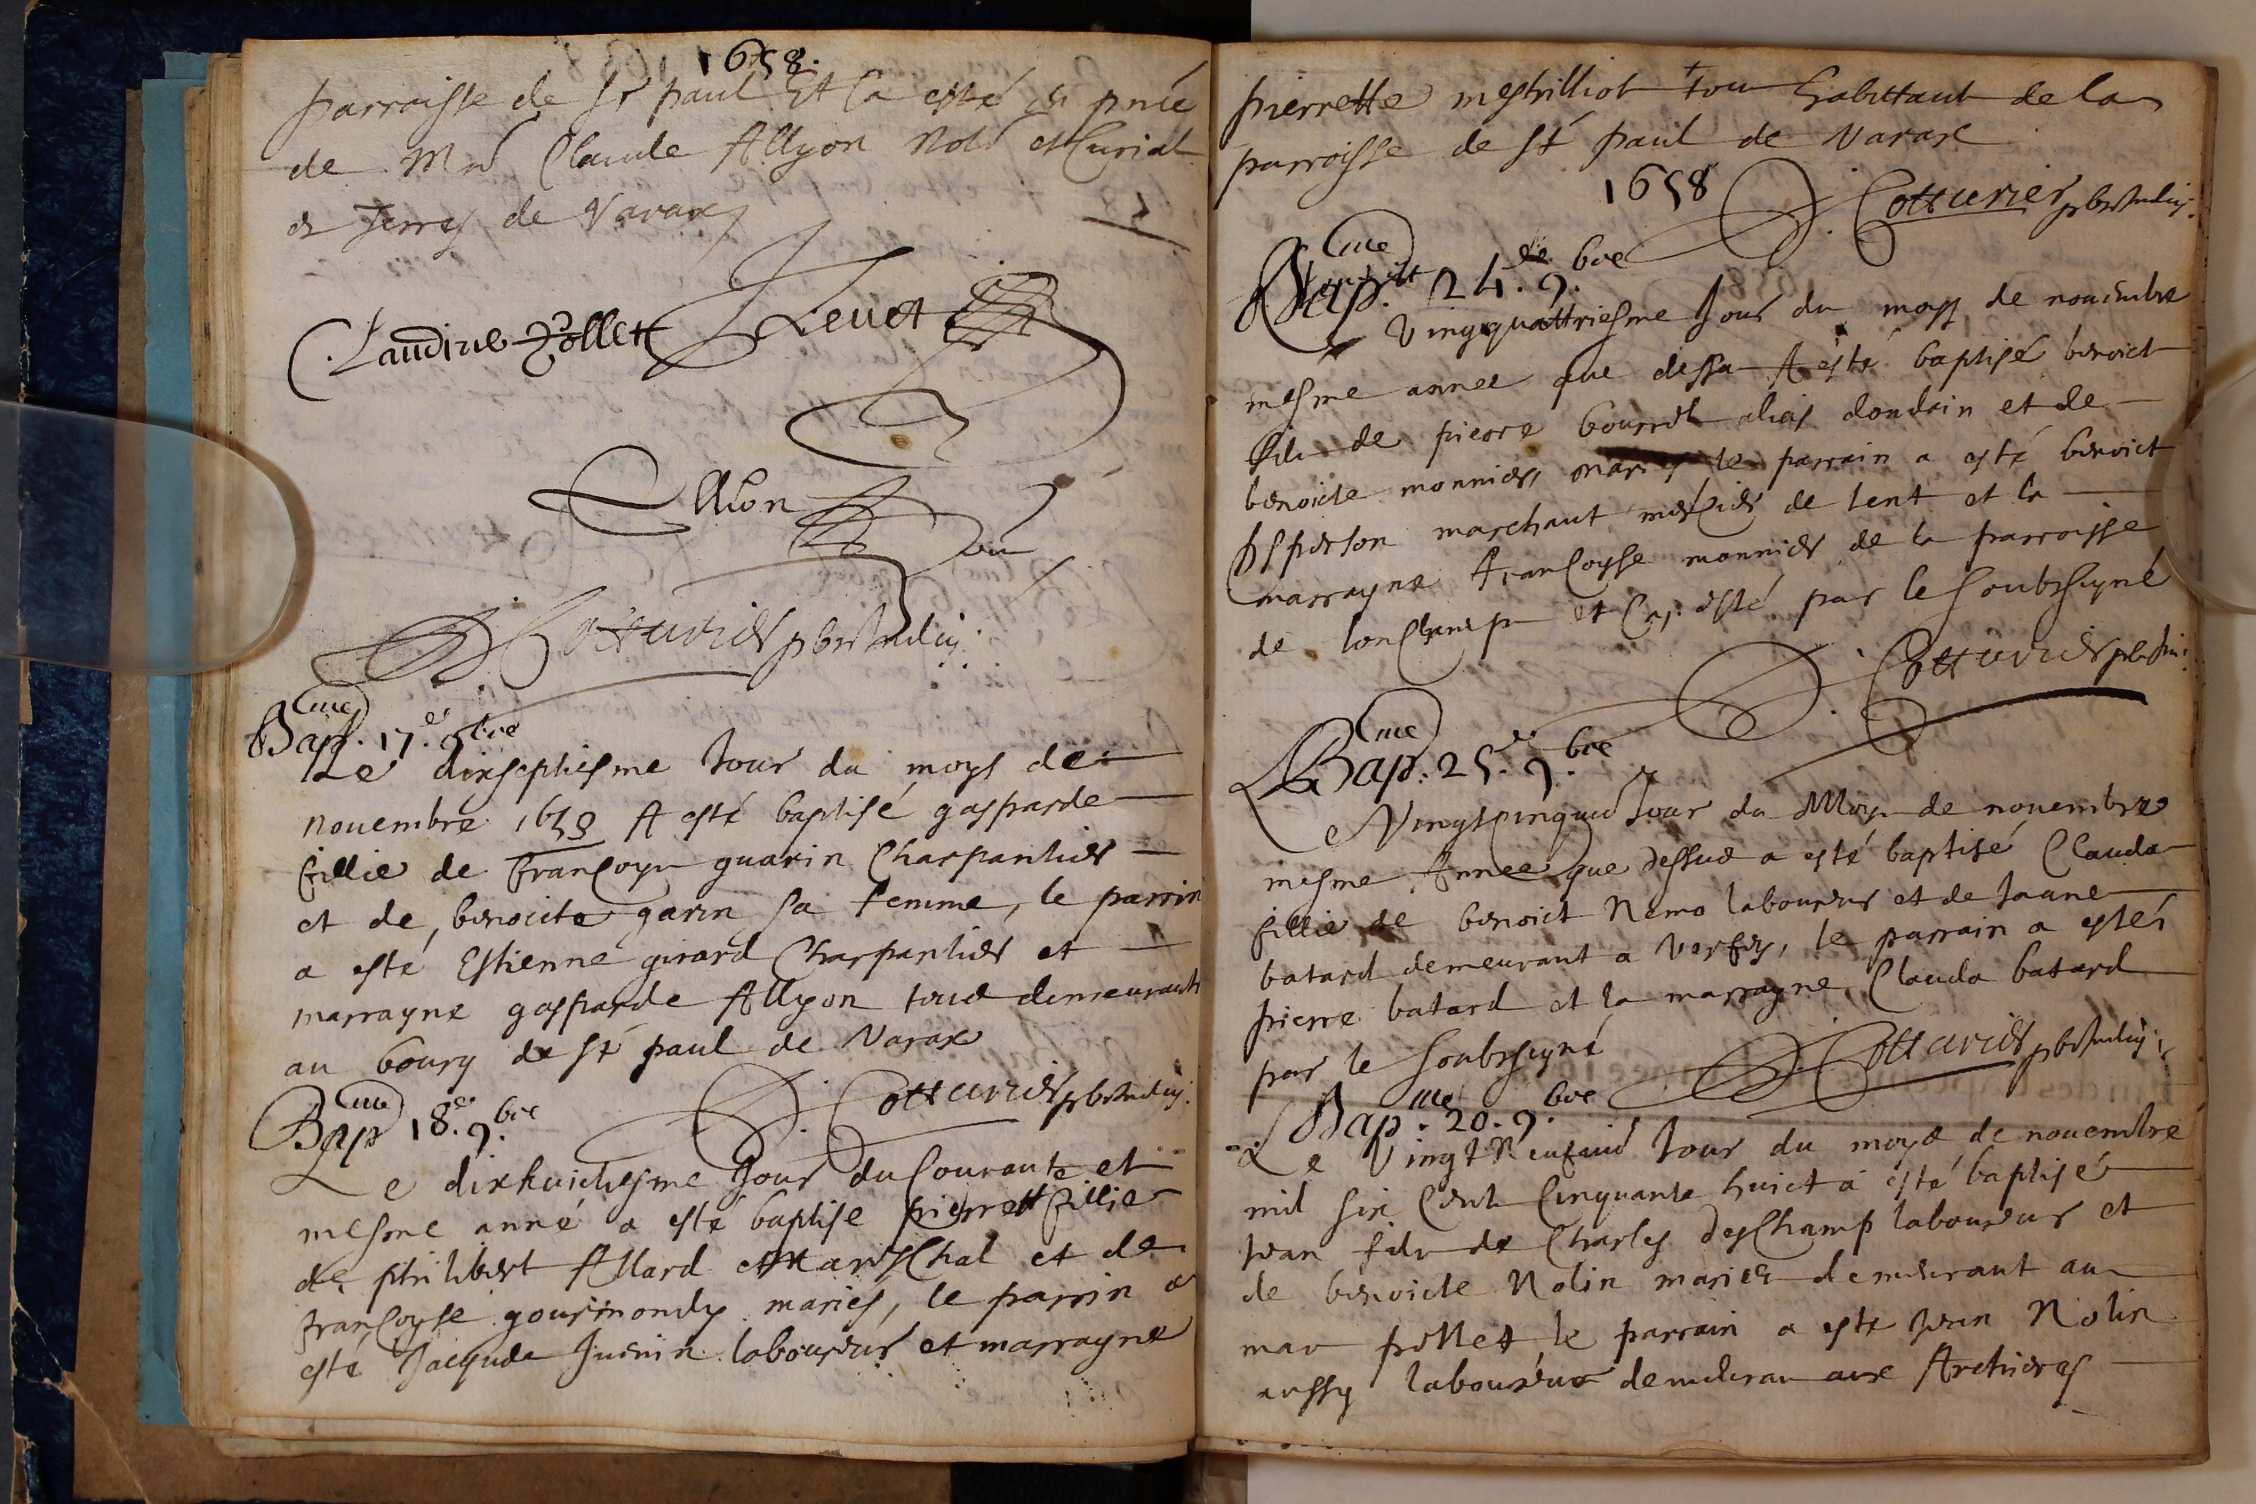 1658.
parroisse de St paul Et la esté en pnce
de Me Claude Allyon Notre et Curial
de Varax
Claudine Follet Levet
Allion
Cotturier pbr Indig.
Bapme. 17.e 9bre
Le dixseptiesme Jour du moys de
nouembre 1658 A esté baptisé gasparde
fillie de francoys guarin Charpantier
et de benoicte garin sa femme, le parrin
a esté Estienne girard Charpantier et
marrayne gasparde Allyon tous demeurants
au bourg de St paul de Varax
Cotturier pbr Indig.
Bapme 18.e 9.bre
Le dixhuictiesme Jour du Courante et
mesme anné a esté baptise pierrett fillie
de philibert Allard Mareschal et de
francoyse gourmondy mariés, le parrin a
esté Jacques Juenin laboureur et marrayne
pierrette mestrilliot tou habittant de la
parroisse de St paul de Varax
1658 Cotturier pbr Indig.
Bapme. 24.e 9.bre
Vingquattriesme Jour du moys de nouembre
mesme annee que dessu A esté baptisé benoict
fils de pierre alias doudain et de
benoicte monnier, mariés le parrain a esté benoict
marchant mercier de lent et la
marrayne francoyse monnier de la parroisse
de lonchamp et esté par le soubsigné
Cotturier pbr Indi.
Bapme. 25.e 9.bre
Vingtcinquie Jour du Moys de nouembre
mesme Annee que dessus a esté baptisé Clauda
fillie de benoict Nemo laboureur et de Jaane
batard demeurant a le parrain a esté
pierre batard et la marrayne Clauda batard
par le soubsigné Cotturier pbr Indig.
Bapme. 29. 9.bre
Le Vingt Neufuie Jour du moys de nouembre
mil six Cent Cinquante huict a esté baptisé
Jean fils de Charles desChamp laboureur et
de benoicte Nolin mariés demeurant au
mar pillet le parrain a esté Jean Nolin
aussy laboureur demeuran aux Archieres